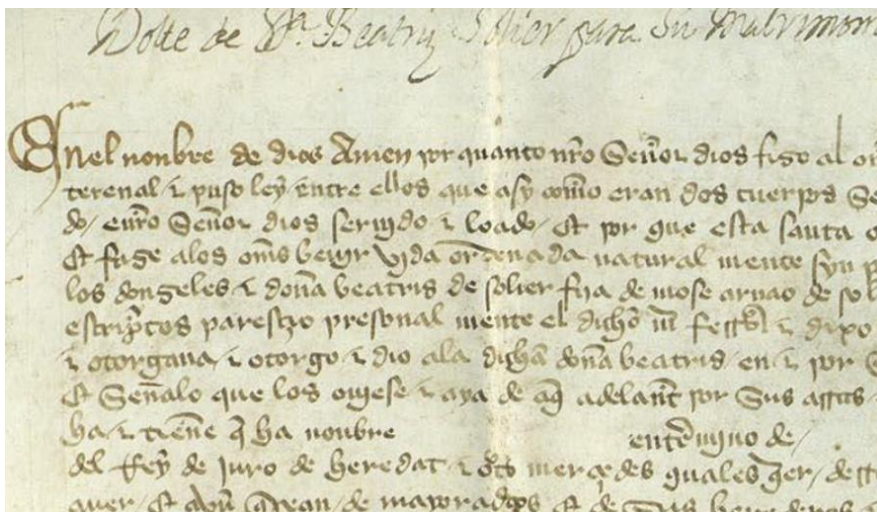 Dotte de Dª. Beatriz Solier para Su Matrimon
En el nonbre de dios Amen por quanto nro Señor dios fizo al
terenal & puso ley entre ellos que asy commo eran dos cuerpos
do / Señor dios seruido & loado / Et por que esta santa
Et faze alos oms beuir vida ordenada natural mente syn
los donzeles & doña beatris de solier fija de mose arnao de sol
parescio presonal mente el dicho & dixo
& otorgaua & otorgo & dio ala dicha doña beatris / en & por
Et Señalo que los ouiese & aya de aq adelant por Sus
ha & tiene q ha nonbre entermino de /
del Rey de juro de heredat & mercedes quales
quer / Et / de mayoradgos Et de Sus